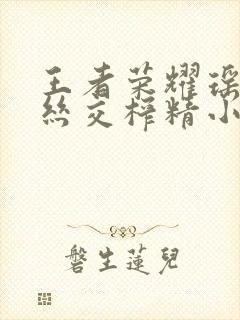 王者荣耀瑶
丝交榨精小
磐生莲儿